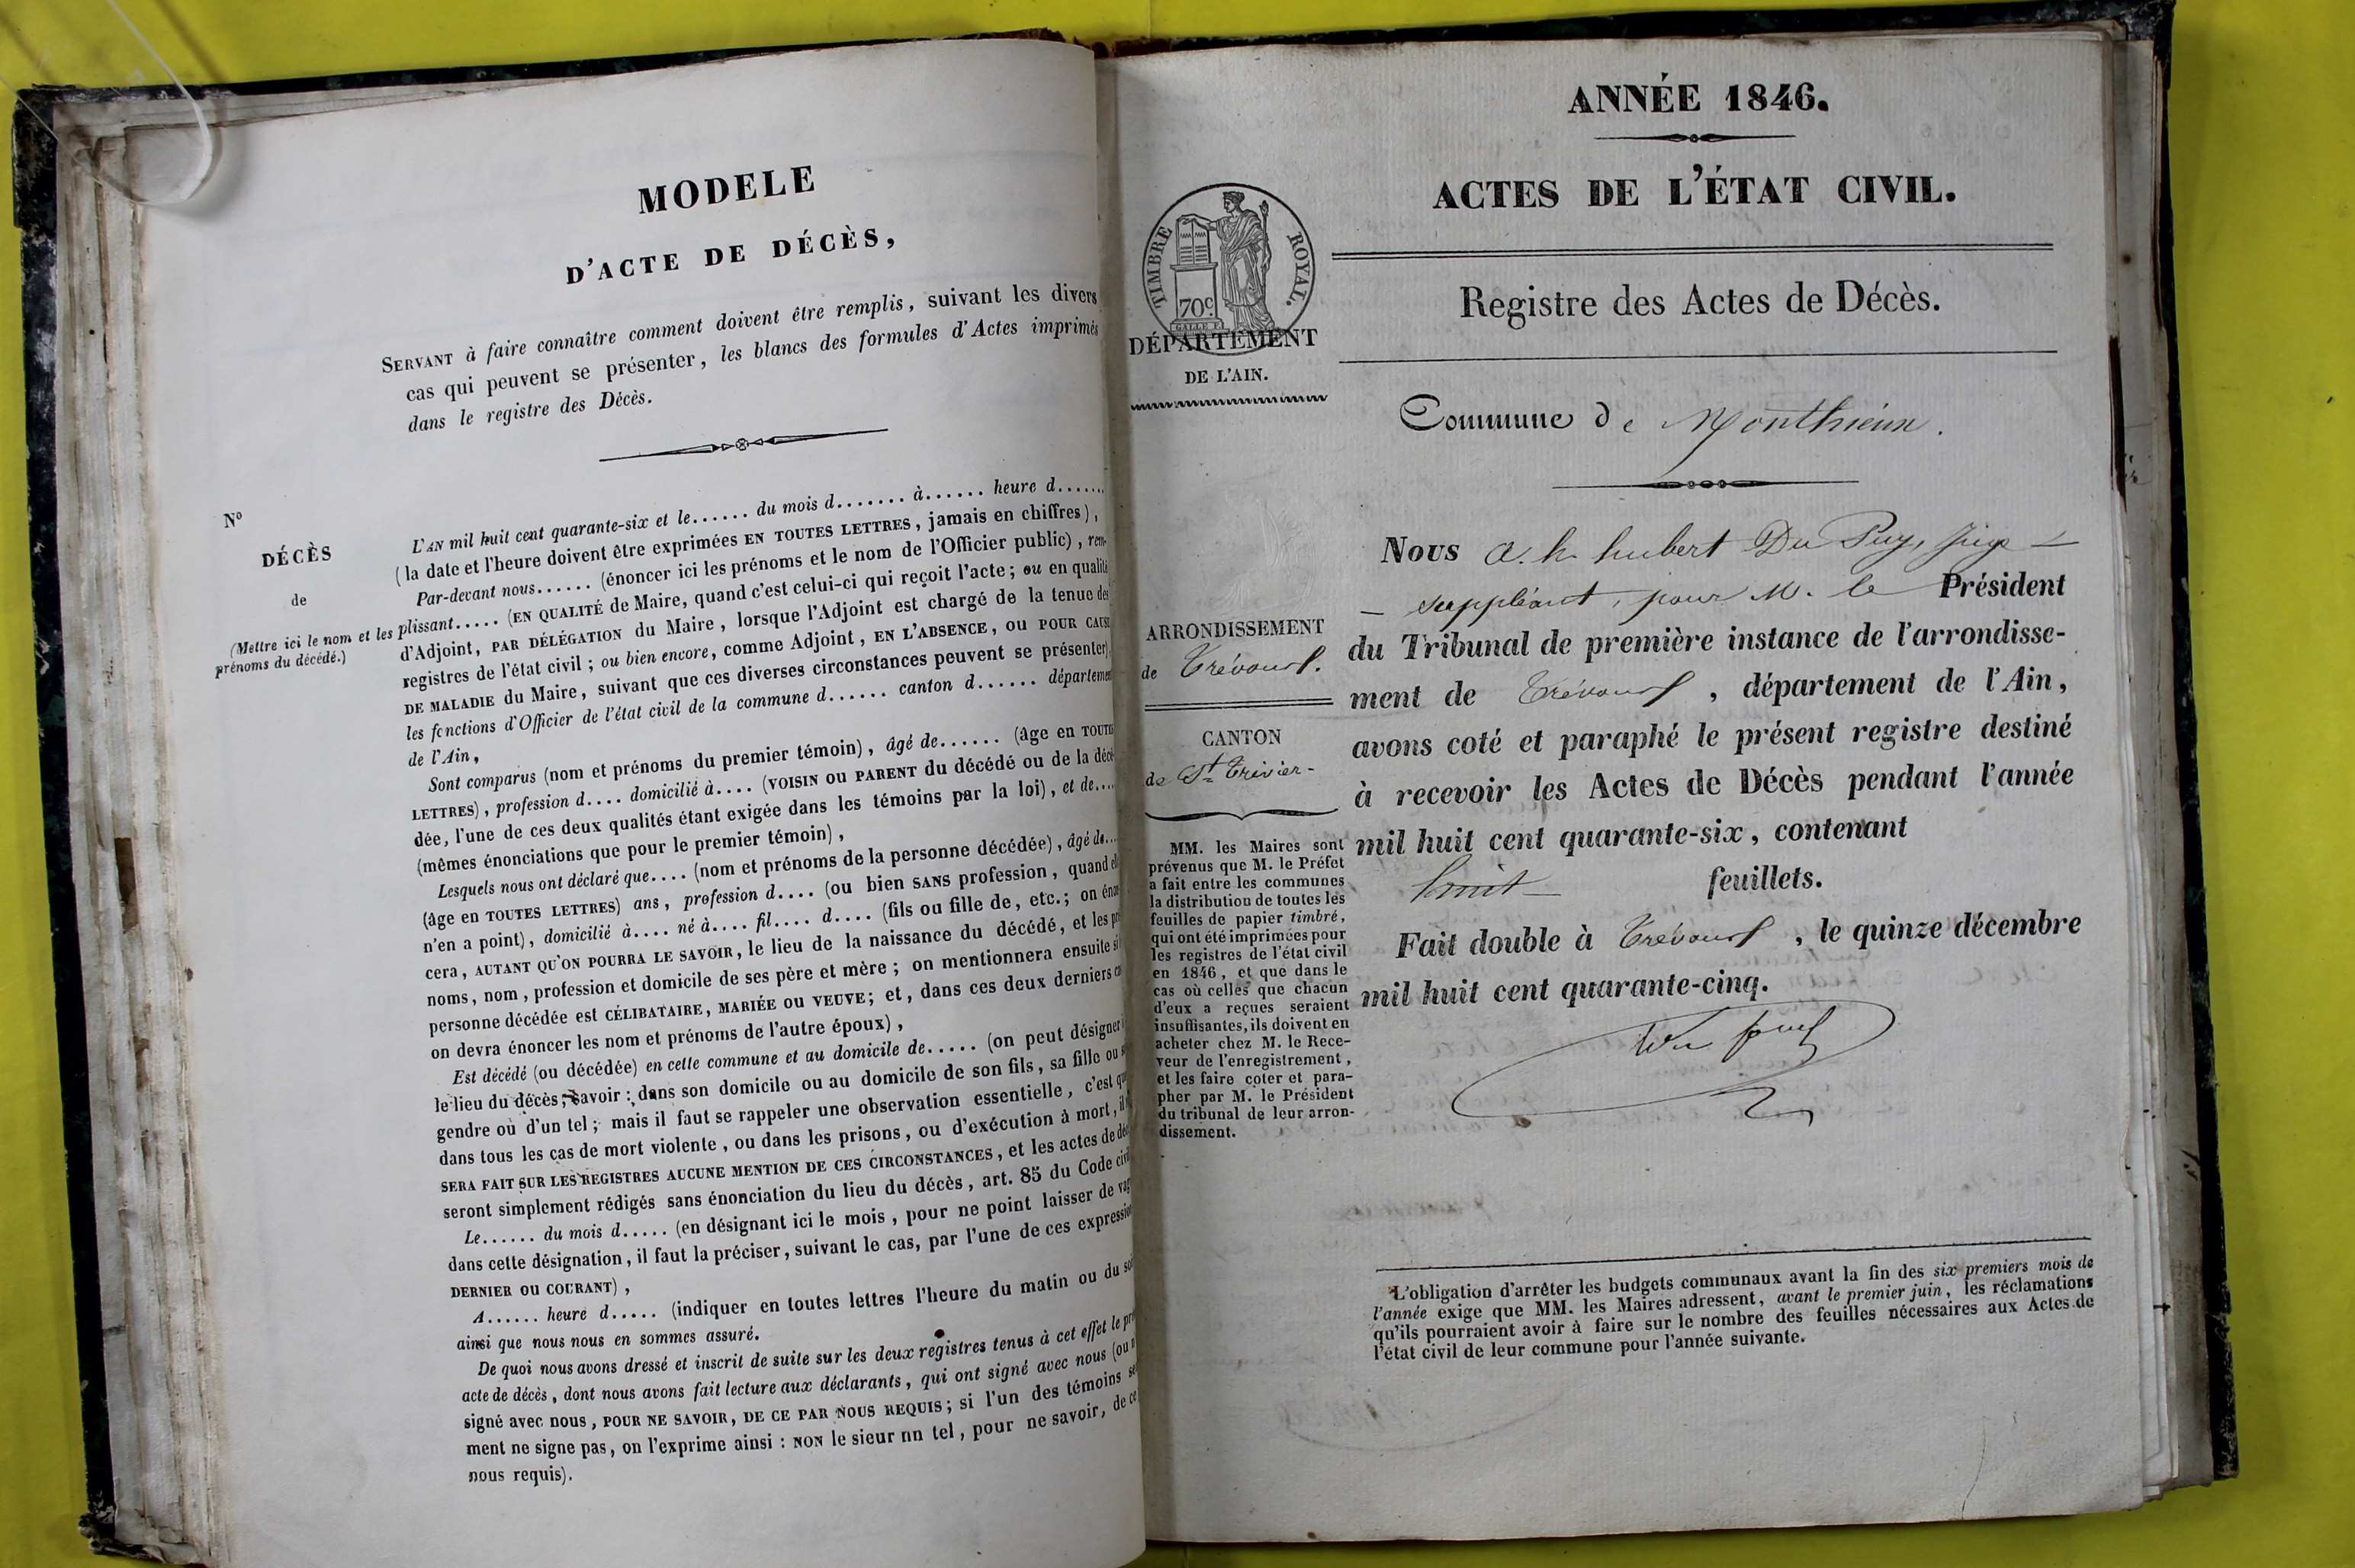 MODELE
D'ACTE DE DÉCÈS,
SERVANT à faire connaître comment doivent être remplis, suivant les divers
cas qui peuvent se présenter, les blancs des formules d'Actes imprimés
dans le registre des Décès.
N°
DÉCÈS
de
(Mettre ici le nom et les
prénoms du décédé.)
L'AN mil huit cent quarante-six et le...... du mois d....... à...... heure d......
(la date et l'heure doivent être exprimées EN TOUTES LETTRES, jamais en chiffres),
Par-devant nous...... (énoncer ici les prénoms et le nom de l'Officier public), rem-
plissant..... (EN QUALITÉ de Maire, quand c'est celui-ci qui reçoit l'acte; ou en qualité
d'Adjoint, PAR DÉLÉGATION du Maire, lorsque l'Adjoint est chargé de la tenue des
registres de l'état civil; ou bien encore, comme Adjoint, EN L'ABSENCE, OU POUR CAUSE
DE MALADIE du Maire, suivant que ces diverses circonstances peuvent se présenter)
les fonctions d'Officier de l'état civil de la commune d...... canton d...... département
de l'Ain,
Sont comparus (nom et prénoms du premier témoin), âgé de...... (âge en TOUTES
LETTRES), profession d.... domicilié à.... (VOISIN OU PARENT du décédé ou de la décé-
dée, l'une de ces deux qualités étant exigée dans les témoins par la loi), et de....
(mêmes énonciations que pour le premier témoin),
Lesquels nous ont déclaré que.... (nom et prénoms de la personne décédée), âgé de...
(âge en TOUTES LETTRES) ans, profession d.... (ou bien SANS profession, quand el
n'en a point), domicilié à.... né à.... fil.... d.... (fils ou fille de, etc.; on énon
cera, AUTANT QU'ON POURRA LE SAVOIR, le lieu de la naissance du décédé, et les pré
noms, nom, profession et domicile de ses père et mère; on mentionnera ensuite si
personne décédée est CÉLIBATAIRE, MARIÉE OU VEUVE; et, dans ces deux derniers ca
on devra énoncer les nom et prénoms de l'autre époux),
Est décédé (ou décédée) en cette commune et au domicile de..... (on peut désigner
le lieu du décès, savoir: dans son domicile ou au domicile de son fils, sa fille ou
gendre ou d'un tel; mais il faut se rappeler une observation essentielle, c'est que
dans tous les cas de mort violente, ou dans les prisons, ou d'exécution à mort, il
SERA FAIT SUR LES REGISTRES AUCUNE MENTION DE CES CIRCONSTANCES, et les actes de déc
seront simplement rédigés sans énonciation du lieu du décès, art. 85 du Code civi
Le...... du mois d..... (en désignant ici le mois, pour ne point laisser de vag
dans cette désignation, il faut la préciser, suivant le cas, par l'une de ces expression
DERNIER OU COURANT),
A...... heure d..... (indiquer en toutes lettres l'heure du matin ou du soi
ainsi que nous nous en sommes assuré.
De quoi nous avons dressé et inscrit de suite sur les deux registres tenus à cet effet le pré
acte de décès, dont nous avons fait lecture aux déclarants, qui ont signé avec nous (ou n
signé avec nous, POUR NE SAVOIR, DE CE PAR NOUS REQUIS; si l'un des témoins se
ment ne signe pas, on l'exprime ainsi: NON le sieur un tel, pour ne savoir, de ce
nous requis).
ANNÉE 1846.
ACTES DE L'ÉTAT CIVIL.
Registre des Actes de Décès.
TIMBRE ROYAL.
70c
GALLE F.
DÉPARTEMENT
DE L'AIN.
Commune de Monthieux.
ARRONDISSEMENT
de Trévoux.
CANTON
de St Trivier-
MM. les Maires sont
prévenus que M. le Préfet
a fait entre les communes
la distribution de toutes les
feuilles de papier timbré,
qui ont été imprimées pour
les registres de l'état civil
en 1846, et que dans le
cas où celles que chacun
d'eux a reçues seraient
insuffisantes, ils doivent en
acheter chez M. le Rece-
veur de l'enregistrement,
et les faire coter et para-
pher par M. le Président
du tribunal de leur arron-
dissement.
Nous a. h. hubert Du Puy, Juge
suppléant, pour M. le Président
du Tribunal de première instance de l'arrondisse-
ment de Trévoux, département de l'Ain,
avons coté et paraphé le présent registre destiné
à recevoir les Actes de Décès pendant l'année
mil huit cent quarante-six, contenant
huit feuillets.
Fait double à Trévoux, le quinze décembre
mil huit cent quarante-cinq.
L'obligation d'arrêter les budgets communaux avant la fin des six premiers mois de
l'année exige que MM. les Maires adressent, avant le premier juin, les réclamations
qu'ils pourraient avoir à faire sur le nombre des feuilles nécessaires aux Actes de
l'état civil de leur commune pour l'année suivante.